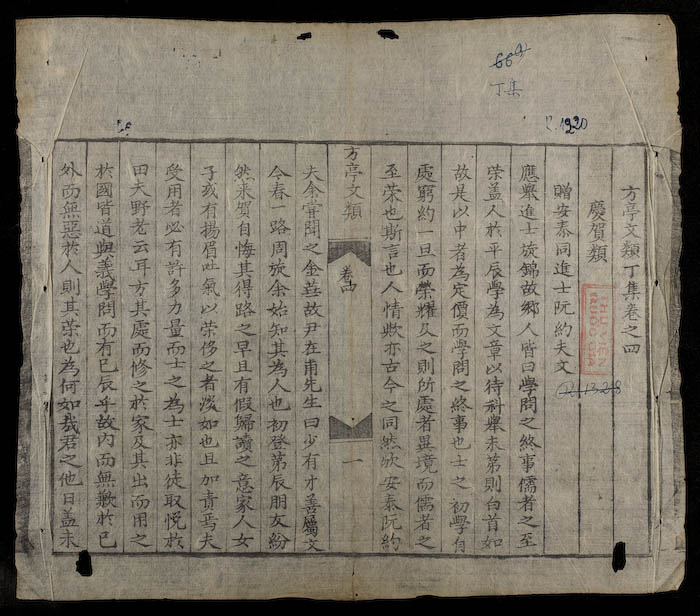 664
丁集
R.1920
方亭文類丁集卷之四
慶賀類
贈安泰同進士阮約夫文
應舉進士旋錦故鄉人皆曰學問之終事儒者之至
荣盖人於平辰學為文章以待科舉未第則白首如
故是以中者為定價而學問之終事也士之初學自
處窮約一旦而榮耀及之則所處者異境而儒者之
至荣也斯言也人情欤亦古今之同然欤安泰阮約
方亭文類
卷四
一
夫余嘗聞之金茎故尹在甫先生曰少有才善屬文
今春一路周旋余始知其為人也初登第辰朋友紛
然来贺自悔其得路之早且有假歸讀之意家人女
子或有揚眉吐氣以荣侈之者淡如也且加責焉夫
受用者必有許多力量而士之為士亦非徒取悦於
田夫野老云耳方其處而修之於家及其出而用之
於國皆道與義學問而有已辰乎故内而無歉於已
外而無惡於人則其荣也為何如哉君之他日盖未
THU VIEN
QUOC GIA